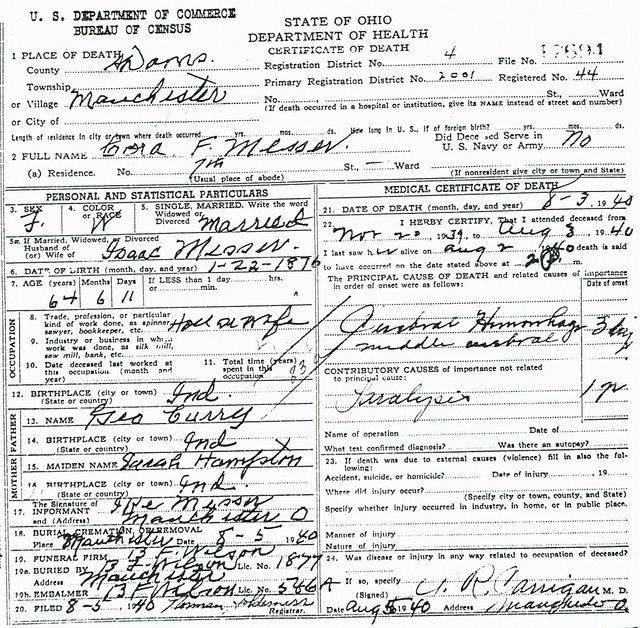 U. S. DEPARTMENT OF COMMERCE
BUREAU OF CENSUS
STATE OF OHIO
DEPARTMENT OF HEALTH
CERTIFICATE OF DEATH
1 PLACE OF DEATH
County Adams
Township
or Village Manchester
or City of
Registration District No. 4 File No.
Primary Registration District No. 2001 Registered No. 44
No. St., Ward
(If death occurred in a hospital or institution, give its NAME instead of street and number)
Length of residence in city or town where death occurred yrs. mos. ds. How long in U. S., if of foreign birth? yrs. mos. ds.
2 FULL NAME Cora F. Messer
Did Deceased Serve in
U. S. Navy or Army No
(a) Residence. No. 7th St., — Ward
(Usual place of abode) (If nonresident give city or town and State)
PERSONAL AND STATISTICAL PARTICULARS
3. SEX F. 4. COLOR or RACE W 5. SINGLE, MARRIED, Write the word Widowed or Divorced Married
5a. If Married, Widowed, or Divorced
Husband of
(or) Wife of Isaac Messer
6. DATE OF BIRTH (month, day, and year) 1-22-1876
7. AGE (years) Months Days If LESS than 1 day hrs. or min.
64 6 11
OCCUPATION
8. Trade, profession, or particular
kind of work done, as spinner,
sawyer, bookkeeper, etc. Housewife
9. Industry or business in which
work was done, as silk mill,
saw mill, bank, etc.
10. Date deceased last worked at
this occupation (month and
year)
11. Total time (years)
spent in this
occupation
12. BIRTHPLACE (city or town) Ind.
(State or country)
FATHER
13. NAME Geo Curry
14. BIRTHPLACE (city or town) Ind
(State or country)
MOTHER
15. MAIDEN NAME Sarah Hampton
16. BIRTHPLACE (city or town) Ind.
(State or country)
The Signature of
17. INFORMANT Ike Messer
and (Address) Manchester O
18. BURIAL, CREMATION, OR REMOVAL
Place Manchester Date 8-5 1940
19. FUNERAL FIRM B F. Wilson
19a. BURIED BY B F. Wilson Lic. No.
Address Manchester
19b. EMBALMER B F. Wilson Lic. No.
20. FILED 8-5 1940 Norman Registrar.
MEDICAL CERTIFICATE OF DEATH
21. DATE OF DEATH (month, day, and year) 8-3 1940
22. I HEREBY CERTIFY, That I attended deceased from
Nov 20 1939, to Aug 3, 1940
I last saw h alive on Aug 2, 1940 death is said
to have occurred on the date stated above at 2 P m.
The PRINCIPAL CAUSE OF DEATH and related causes of importance
in order of onset were as follows: Date of onset
Cerebral Hemorrhage
middle cerebral
CONTRIBUTORY CAUSES of importance not related
to principal cause:
Paralysis
Name of operation Date of
What test confirmed diagnosis? Was there an autopsy?
23. If death was due to external causes (violence) fill in also the following:
Accident, suicide, or homicide? Date of injury , 19
Where did injury occur?
(Specify city or town, county, and State)
Specify whether injury occurred in industry, in home, or in public place.
Manner of injury
Nature of injury
24. Was disease or injury in any way related to occupation of deceased?
If so, specify
(Signed) R. Carrigan M. D.
Date Aug 5 1940 Address Manchester O.